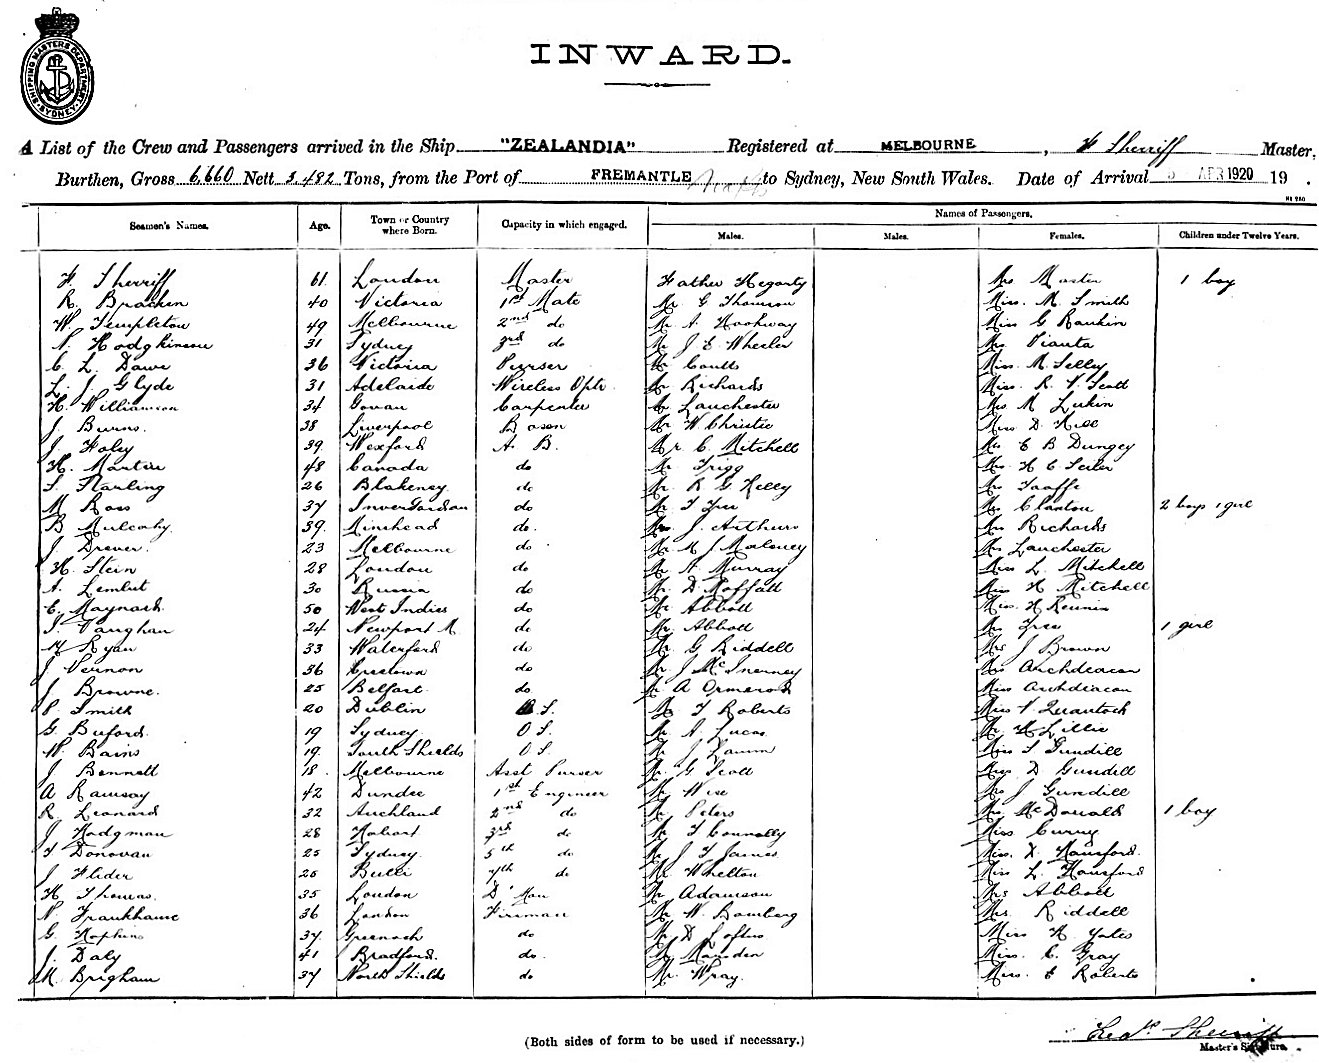 SHIPPING MASTERS DEPARTMENT SYDNEY
INWARD.
A List of the Crew and Passengers arrived in the Ship "ZEALANDIA" Registered at MELBOURNE, F Sherriff Master,
Burthen, Gross 6,660 Nett 3,482 Tons, from the Port of FREMANTLE to Sydney, New South Wales. Date of Arrival 5 APR 1920 19 .
Seamen's Names. Age. Town or Country where Born. Capacity in which engaged. Names of Passengers.
Males. Males. Females. Children under Twelve Years.
F Sherriff 61 London Master Father Hegarty Mrs Master 1 boy
R. Bracken 40 Victoria 1st Mate Mr G Thomson Miss. M. Smith
W. Templeton 49 Melbourne 2nd do Mr A. Hookway Miss G Rankin
N. Hodgkinson 31 Sydney 3rd do Mr J E Wheeler Mrs Pianta
C L. Dawe 36 Victoria Purser Mr Coutts Miss. M. Selley
L. J. Glyde 31 Adelaide Wireless Optr. Mr Richards Miss. R. V. Scott
H. Williamson 34 Govan Carpenter Mr Lanchester Mrs M Lukin
J. Burns. 38 Liverpool Bosen Mr W Christie Miss D. Hill
J. Foley 39 Wexford A. B. Mr C. Mitchell Mrs E B Dungey
H. Martin 48 Canada do Mr Trigg Mrs. H C Seiler
S. Starling 26 Blakeney do Mr. R G Kelly Mrs Taaffe
M Ross 37 Invergordon do Mr T Tree Mrs Clanton 2 boys 1 girl
B Mulcahy. 39. Minehead do. J. Arthurs Mrs Richards
J. Drever. 23 Melbourne do Mr M J Maloney Mrs Lanchester
H. Stein 28 London do Mr A. Murray Miss L. Mitchell
A. Lembit 30 Russia do Mr D. Moffatt Miss H Mitchell
C. Maynard. 50 West Indies do Mr. Abbott Miss. H
J. Vaughan 24 Newport M. do Mr Abbott Mrs Tree 1 girl
Ryan 33 Waterford do Mr G Riddell Mrs J Brown
J Vernon 36 do Mr J McInerney Mrs Archdeacon
J. Browne. 25 Belfast do Mr A Ormerod Miss Archdeacon
P. Smith 20 Dublin S. Mr T Roberts Miss V Quantock
G. Buford. 19 Sydney O S. Mr A. Lucas Mrs H Lillie
W. Bains 19. South Shields O S. Mr J. Miss Gundill
J. Bennett 18. Melbourne Asst Purser Mr G Scott Miss D Gundill
A Ramsay 42 Dundee 1st Engineer Mr Wise Mrs J Gundill
R. Leonard 32 Auckland 2nd do Mr Peters Mrs McDonald 1 boy
J. Hodgman 28 Hobart 3rd do Mr T Connolly Miss Curry
T Donovan 25 Sydney. 5th do Mr J T James Miss. Hansford.
J 26 Bulli 7th do Mr Whelton Miss L. Hansford
H Thomas. 35 London D'Man Mr Adamson Mrs Abbott
N. Frankhame 36 London Fireman Mr W. Bamberg Mrs. Riddell
G. Hopkins 37 Greenock do Mr D Loftus Miss H. Yates
J. Daly 41 Bradford. do. Mr Marsden Miss. C. Gray
M. Brigham 37 North Shields do Mr. Wray. Miss. E Roberts
Sherriff
Master's Signature.
(Both sides of form to be used if necessary.)